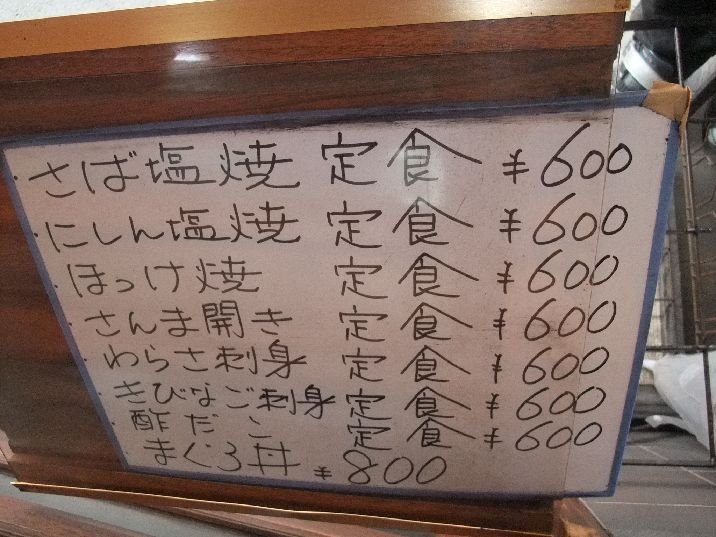 ・さば塩焼 定食 ¥600
・にしん塩焼 定食 ¥600
・ほっけ焼 定食 ¥600
・さんま開き 定食 ¥600
・わらさ刺身 定食 ¥600
・きびなご刺身 定食 ¥600
酢だこ 定食 ¥600
まぐろ丼 ¥800